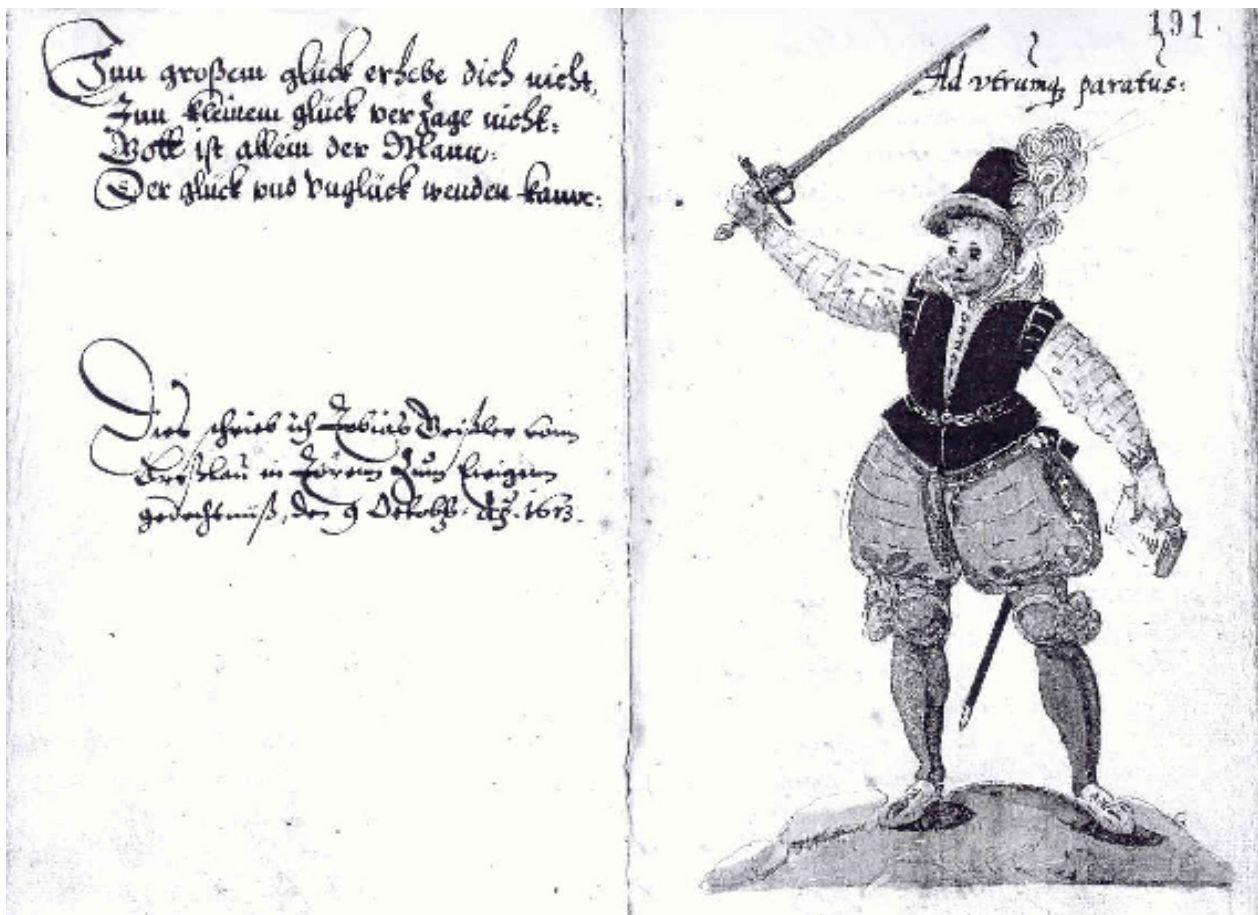 Inn großem glück erhebe dich nicht,
Inn kleinem glück verzage nicht:
Gott ist allein der Mann:
Der glück vnd vnglück wenden kann:
Dies schrieb ich Tobias vonn
Breßlau in zum Ewigem
gedechtnuß, den 9 Octob: Aō. 1613.
191.
Ad vtrumq; paratus: